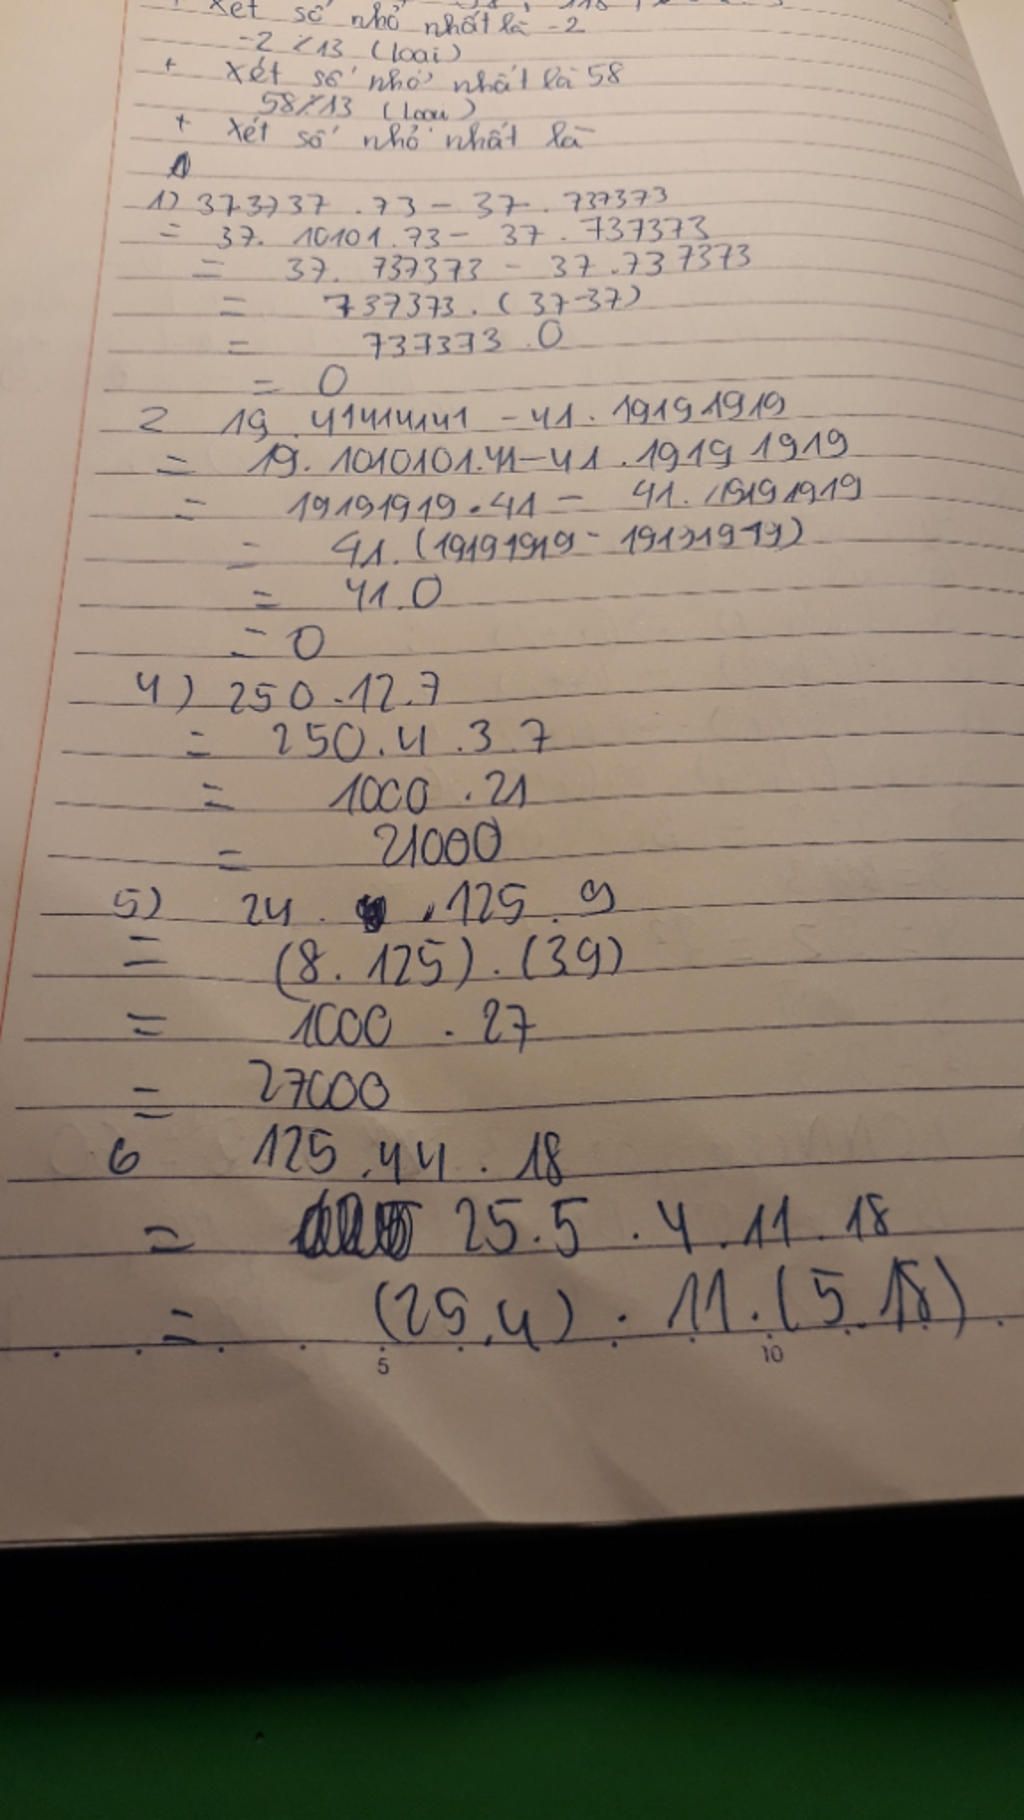 + Xét số nhỏ nhất là -2
-2 ⋮̸ 13 (loại)
+ Xét số nhỏ nhất là 58
58 ⋮̸ 13 (loại)
+ Xét số nhỏ nhất là
1) 373737 . 73 - 37 . 737373
= 37. 10101 . 73 - 37 . 737373
= 37. 737373 - 37 . 737373
= 737373 . (37-37)
= 737373 . 0
= 0
2 19 . 41414141 - 41 . 19191919
= 19. 1010101.41 - 41 . 19191919
= 19191919 . 41 - 41. 19191919
= 41. (19191919 - 19191919)
= 41.0
= 0
4) 250 .12.7
= 250.4 .3.7
= 1000 .21
= 21000
5) 24 . . 125 . 9
= (8 . 125) . (39)
= 1000 . 27
= 27000
6 125 .44 . 18
= 25.5 . 4 . 11 . 18
= (25.4) . 11 . (5.18)
5 10